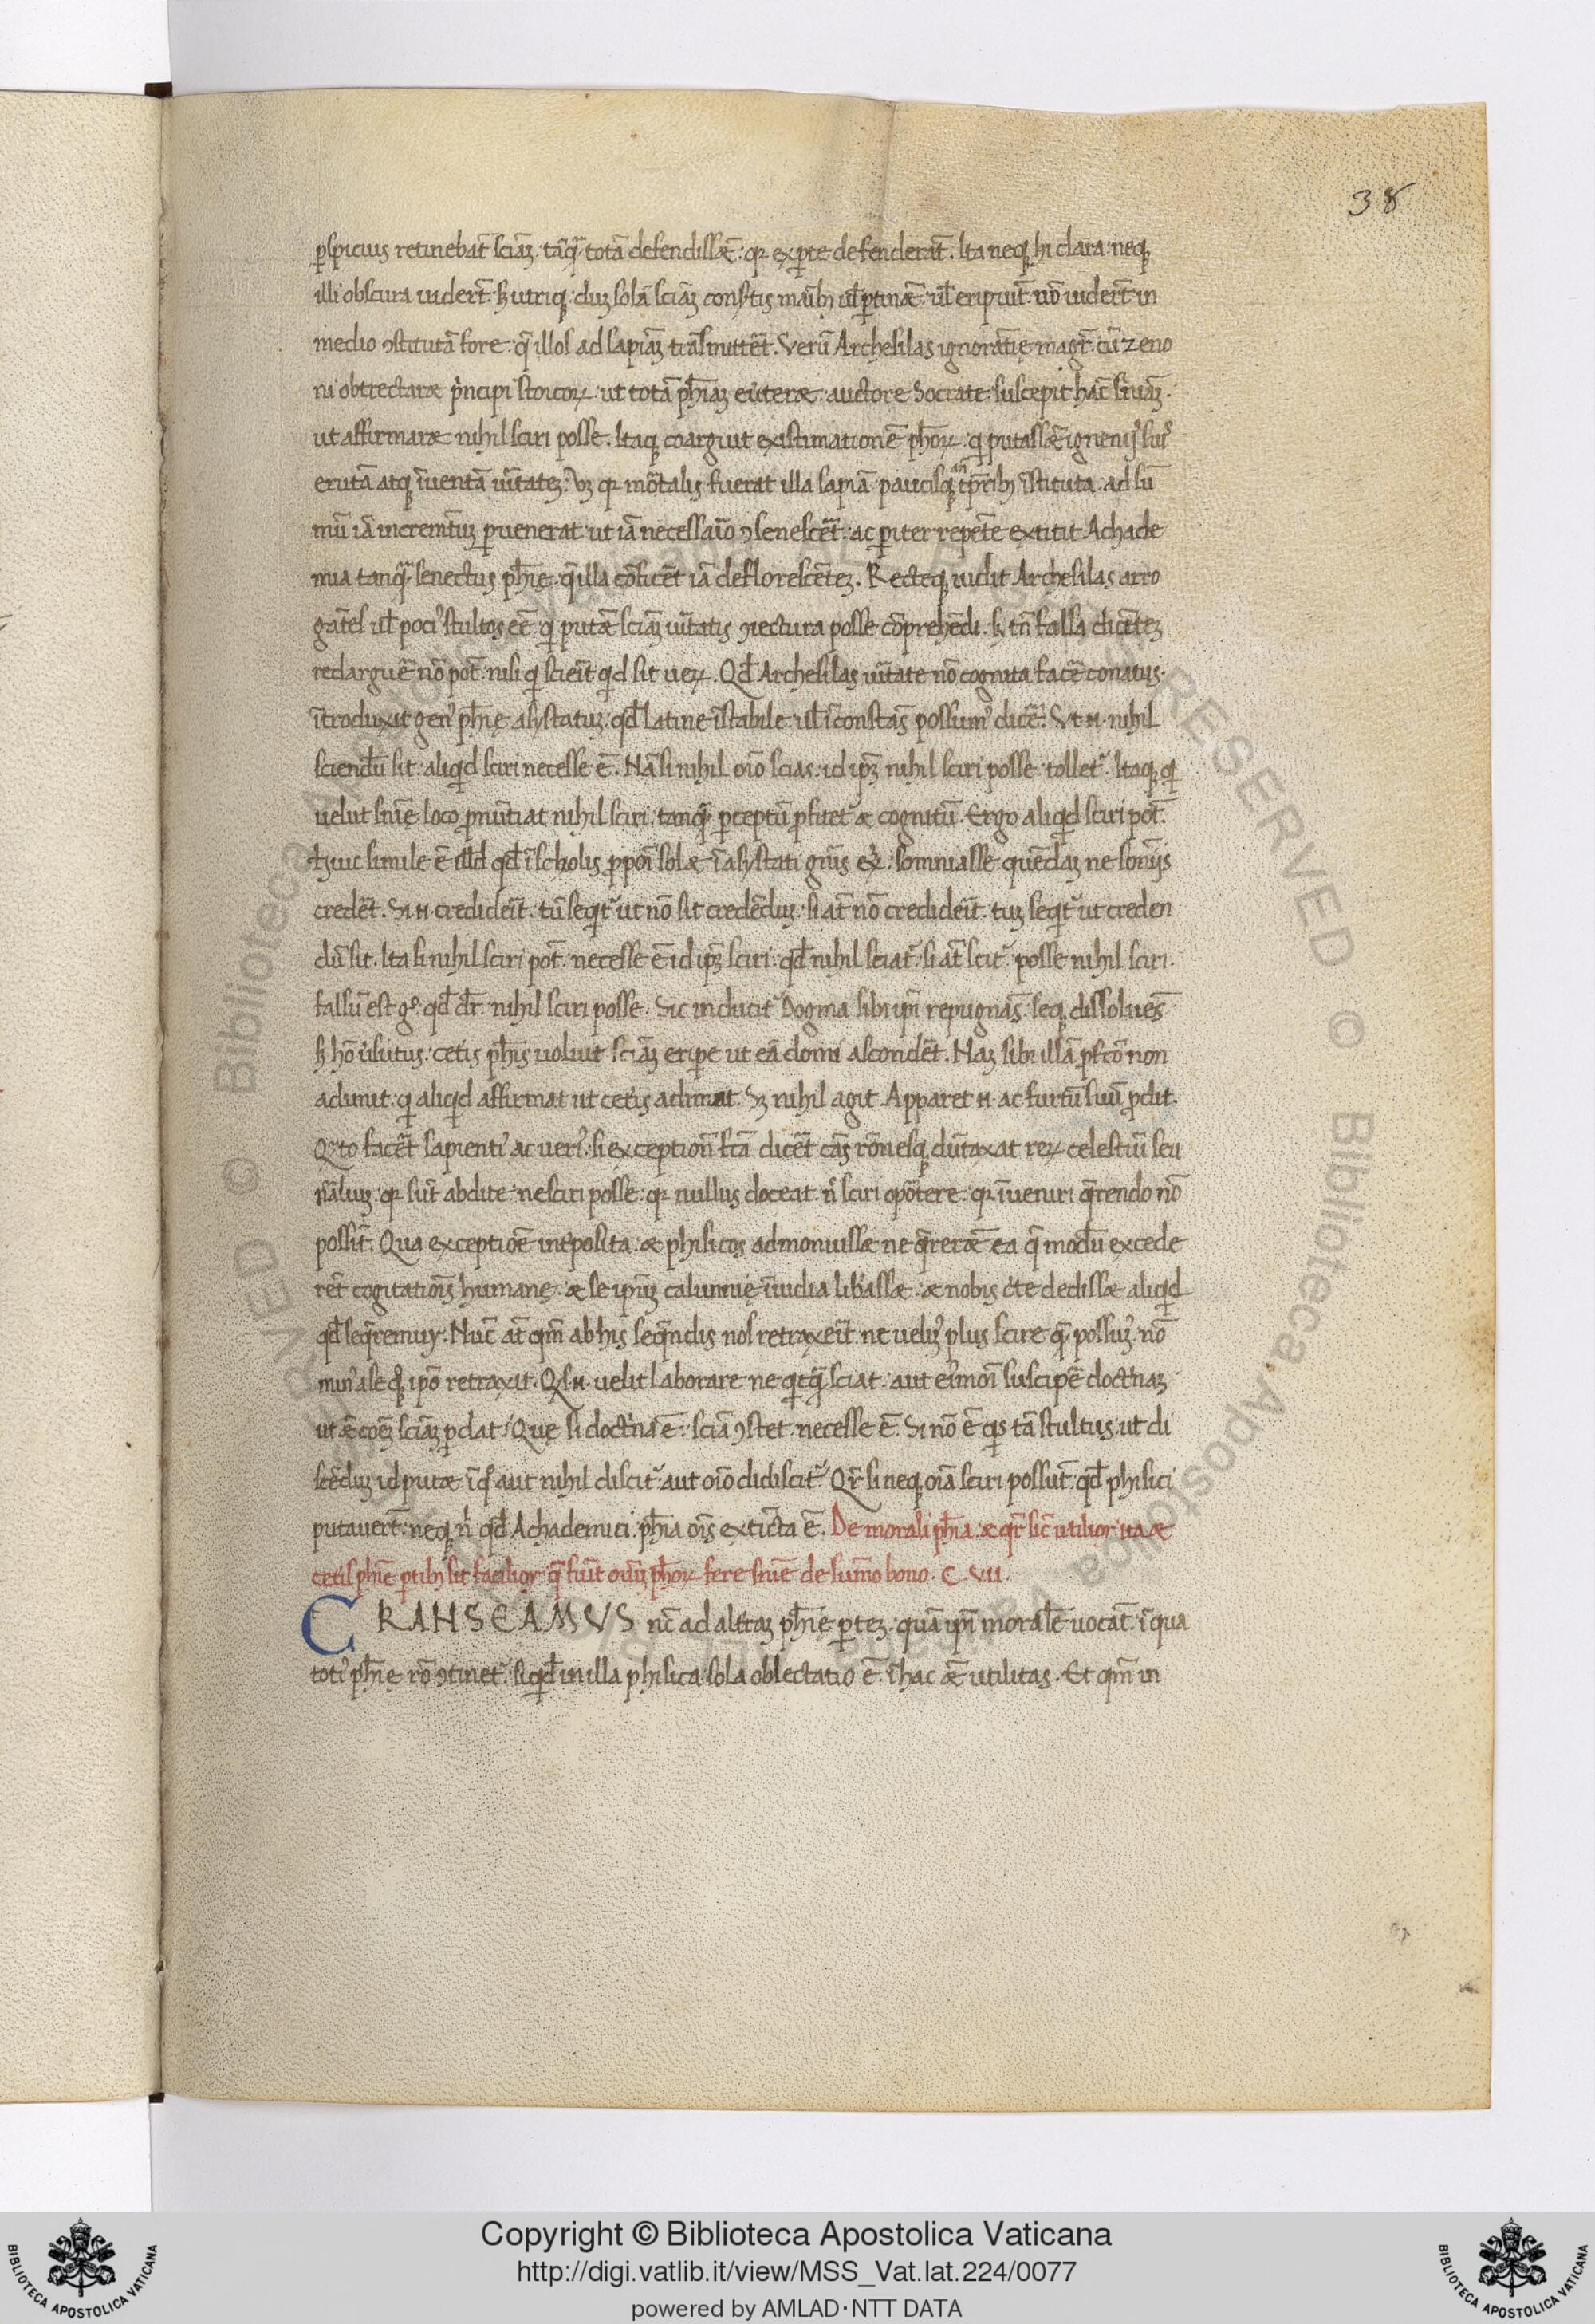 38
ꝑspicius retinebāt sciāꝫ. tāq̄ȝ totā defendissēt: qꝛ ex ꝑte defenderāt. Ita neqꝫ hi clara neqꝫ
illi obscura uiderūt. sꝫ utriqꝫ duꝫ solā sciāꝫ
medio ꝯstitutā fore. q̄ illos ad sapiāꝫ trāsmittēt. Verū Archesilas ignorātię magr̄. cū zeno
ni obtrectaret p̓ncipi stoicoꝝ. ut totā ph̄iaꝫ auctore Socrate suscepit hāc
ut affirmaret nihil sciri posse. Itaqꝫ coarguit existimationē ph̄oꝝ. q̓ putassēt
erutā atqꝫ īuentā ū̓tateꝫ. Vꝫ qꝛ mōtalis fuerat illa sapiā paucisqꝫ īstituta. ad sū
mū iā incremtūꝫ ꝑuenerat ut iā necessaīo ꝯsenesceret. ac ꝑiter repēte extitit Achade
mia tanqȝ senectus ph̄ię. q̄ illā cōficēt iā deflorescēteꝫ. Recteqꝫ uidit Archesilas arro
gātes ul̄ poci᾽ stultos eē. q̓ putāt sciāꝫ ū̓itatis ꝯiectura posse cōprehēdi. sꝫ tn̄ falsa dicēteꝫ
redarguē nō pot̄. nisi q̓ scieīt q̓d sit ueꝝ. Qd̄ Archesilas ū̓itate nō cognita facē conatus.
ītroduxit gen᾽ ph̄ię asystatuꝫ. qd̄ Latine īstabile. ul̄ īconstās possum᾽ dicē. Vt n. nihil
sciendū sit. aliq̓d sciri necesse ē. Nā si nihil oīo scias. id ip̄ꝫ nihil sciri posse tollet᾽. Itaqꝫ q̓
uelut snīę loco ꝓnūtiat nihil sciri. tanqȝ ꝑceptū ꝓfitet᾽ et cognitū. Ergo aliq̓d sciri pot̄.
Huic simile ē illd̄ qd̄ ī scholis ꝓponi solet ī asystati gn̄is ex̄. somniasse quēdaꝫ ne somniis
crederet. Si n. credideīt. tū seqit᾽ ut nō sit credēduꝫ. si at̄ nō credideīt. tuꝫ seqit᾽ ut creden
dū sit. Ita si nihil sciri pot̄. necesse ē id ip̄ꝫ sciri. qd̄ nihil sciat᾽. si at̄ scit᾽ posse nihil sciri.
falsū est gº. qd̄ dr̄ nihil sciri posse. Sic inducit᾽ Dogma sibi ip̄i repugnās. seqꝫ dissoluēs
sꝫ hō ū̓sutus. cetis ph̄is uoluit sciāꝫ eripe ut eā domi ascondēt. Naꝫ sibi illā ꝓfcō non
adimit. q̓ aliq̓d affirmat ut cetis adimat. Sꝫ nihil agit. Apparet n. ac furtū suū ꝓdit.
Qꝛto facēt sapienti᾽ ac ueri᾽. si exceptionē fc̄ā dicēt cās rōnesqꝫ dūtaxat reꝝ celestiū seu
nāliuꝫ. qꝛ sūt abdite nesciri posse. qꝛ nullus doceat. n̄ sciri opōtere. qꝛ īueniri q̄rendo nō
possīt. Qua exceptiōe int̓posita. et phisicos admonuisset ne q̄rerēt ea q̄ modū excede
rēt cogitatiōis humanę. et se ipm̄ calumnię īuidia lib̓asset. et nobis cte dedisset aliq̓d
qd̄ seq̄remur. Nūc at̄ qm̄ ab his seqndis nos retraxeīt. ne uelim᾽ plus scire q̄ȝ possum᾽. nō
min᾽ a se qꝫ ip̄o retraxit. Qs n. uelit laborare ne qcq̄ȝ sciat. aut ei᾽moī suscipē doctnaꝫ
ut et coēꝫ sciāꝫ ꝑdat. Que si doctna ē. sciā ꝯstet necesse ē. Si nō ē qis tā stultus. ut di
scēduꝫ id putet. ī q° aut nihil discit᾽. aut oīo didiscit᾽. Qr̄ si neqꝫ oīa sciri possūt. qd̄ phisici
putauerūt. neqꝫ n̄l qd̄ Achademici. ph̄ia oīs extīcta ē. De morali ph̄ia. et qr̄ sic̄ utilior. ita et
cetis ph̄ie ꝑtibꝫ sit facilior. q̄ fuīt oīuꝫ ph̄oꝝ fere snīe de sūmo bono. C. VII.
CRANSEAMVS nc̄ ad alt̓aꝫ ph̄ie ꝑteꝫ. quā ip̄i moralē uocāt. ī qua
toti᾽ ph̄ię rō ꝯtinet᾽. siq̓d in illa phisica sola oblectatio ē. ī hac et utilitas. Et qm̄ in
Copyright © Biblioteca Apostolica Vaticana
http://digi.vatlib.it/view/MSS_Vat.lat.224/0077
powered by AMLAD·NTT DATA